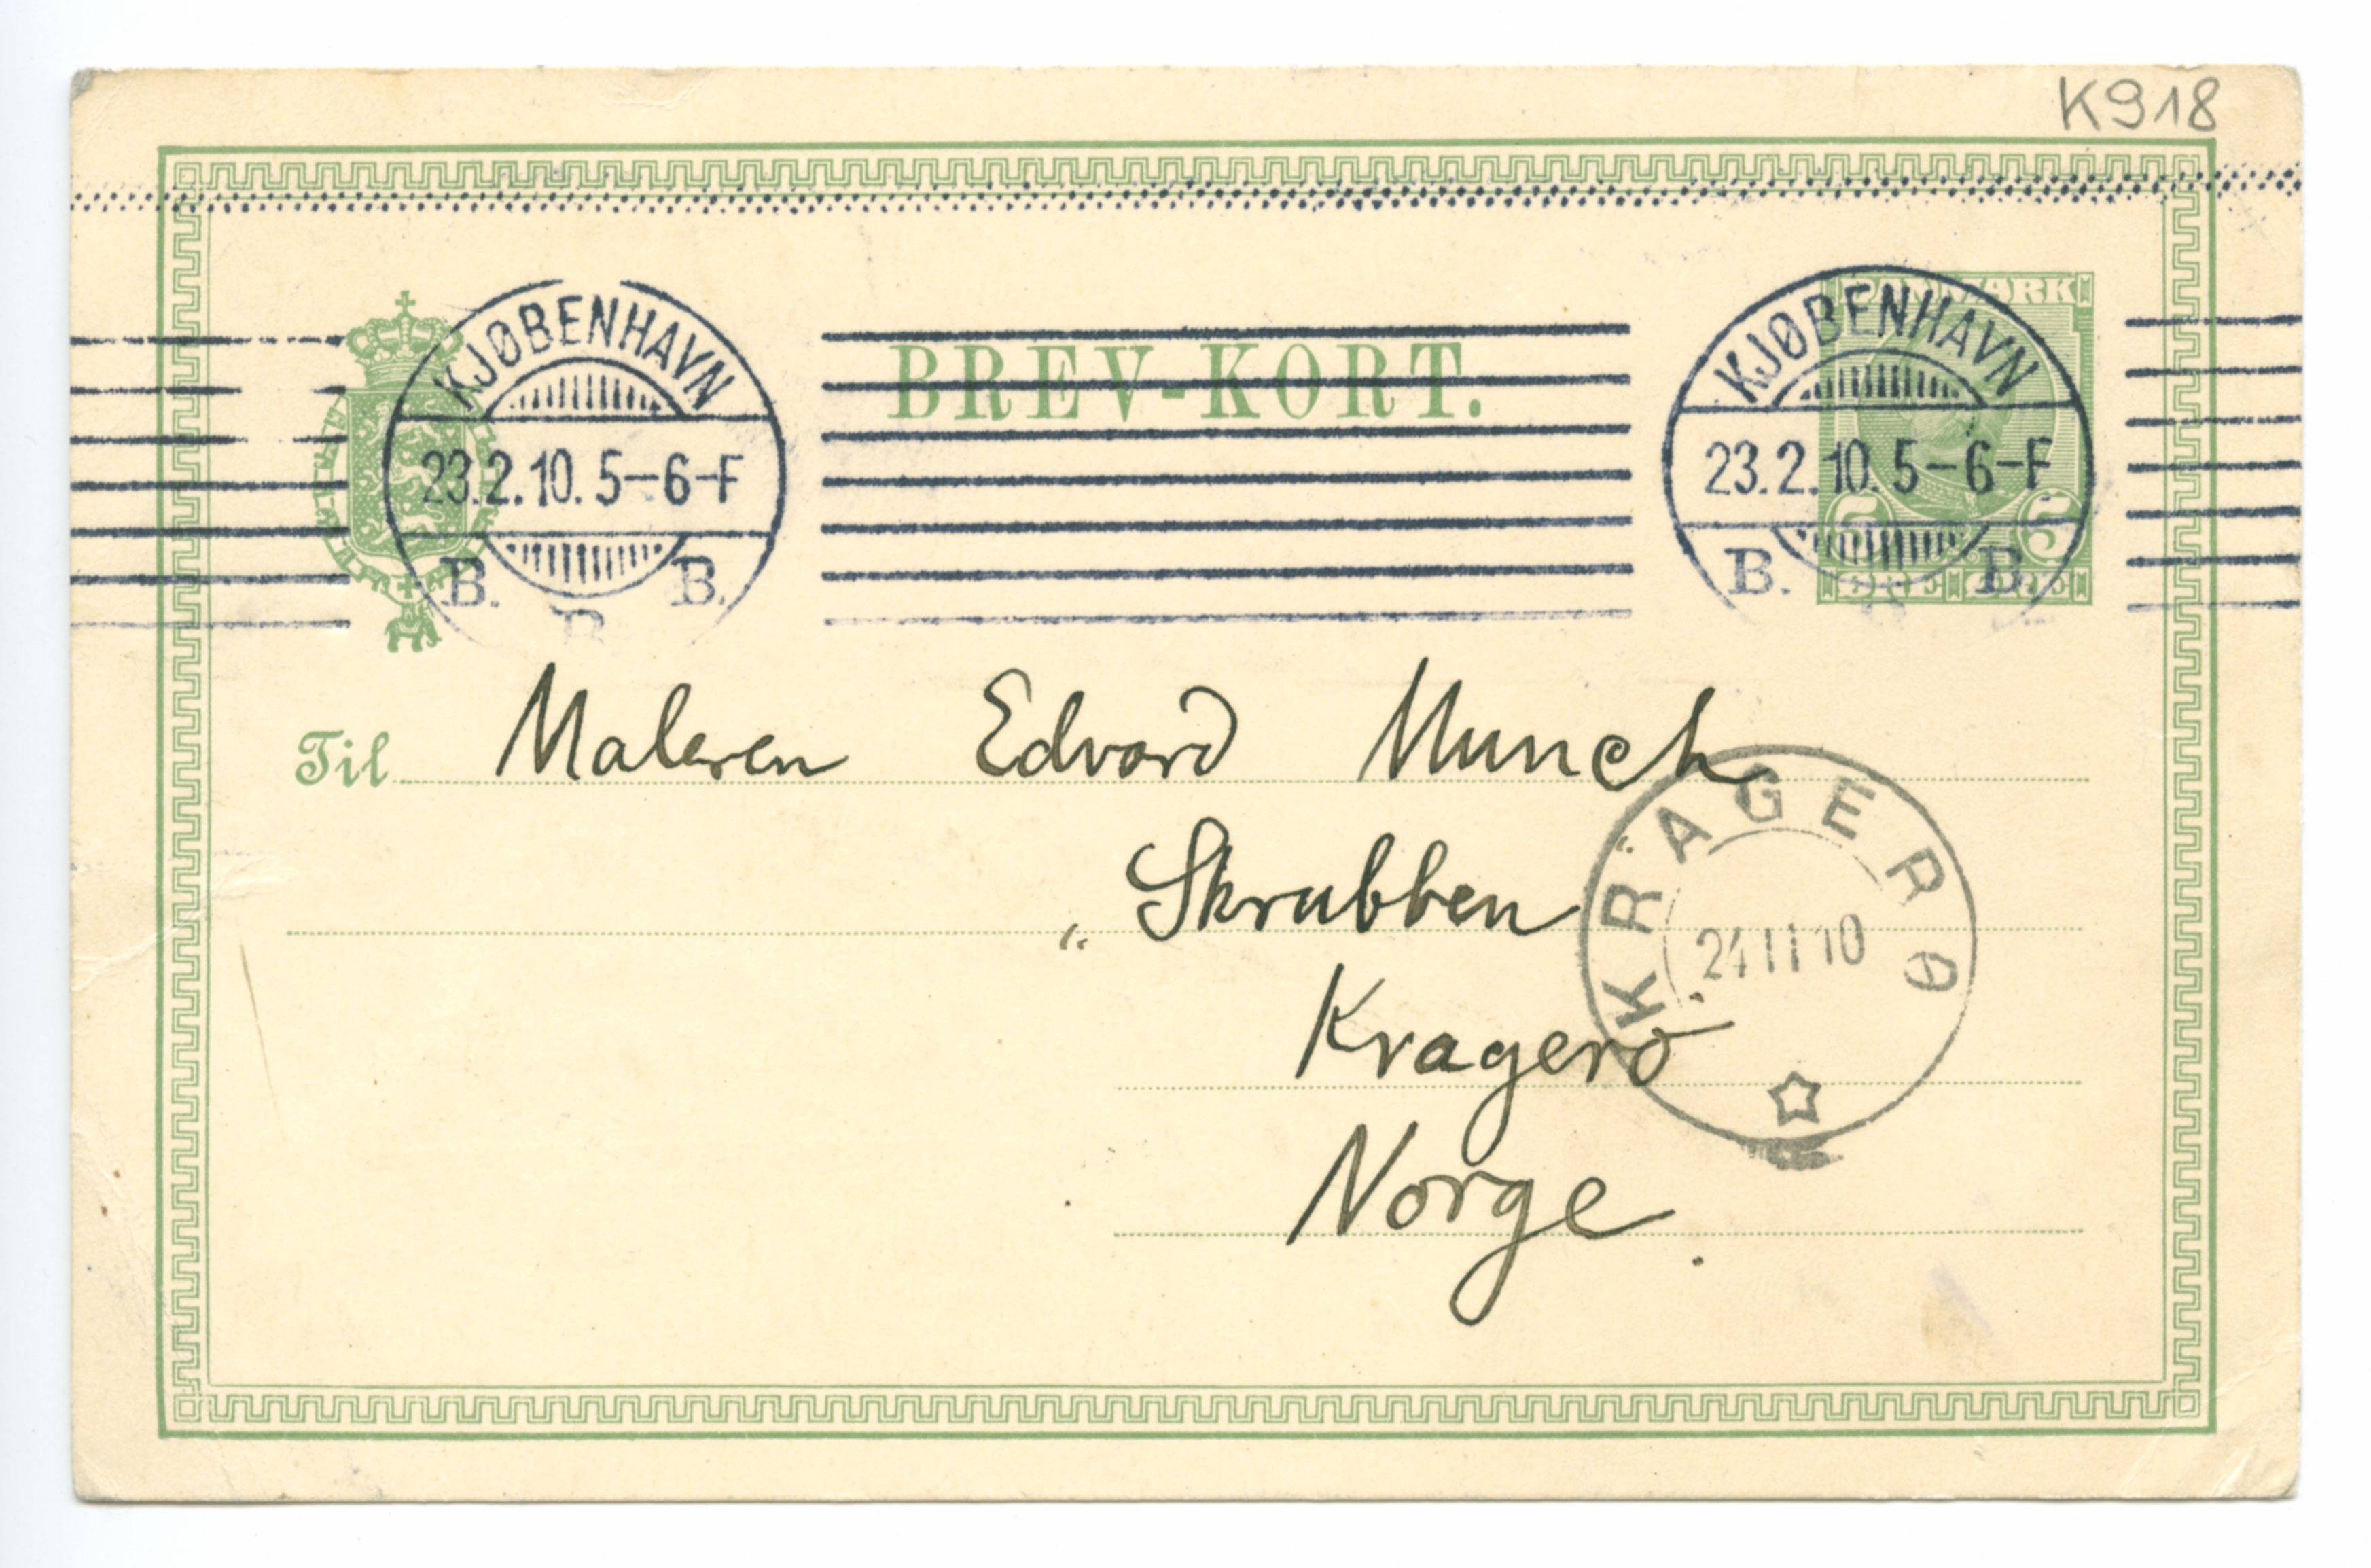 K918
BREV-KORT.
DANMARK
5 5
ØRE ØRE
KJØBENHAVN
23.2.10. 5-6-F
B. B.
B
KJØBENHAVN
23.2.10. 5-6-F
B. B.
Til Maleren Edvard Munch
„ Skrubben
Kragerø
Norge.
KRAGERØ
24 II 10